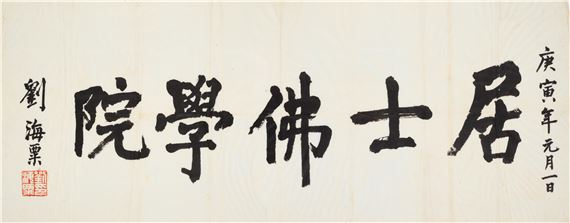 庚寅年元月一日
居士佛學院
劉海粟